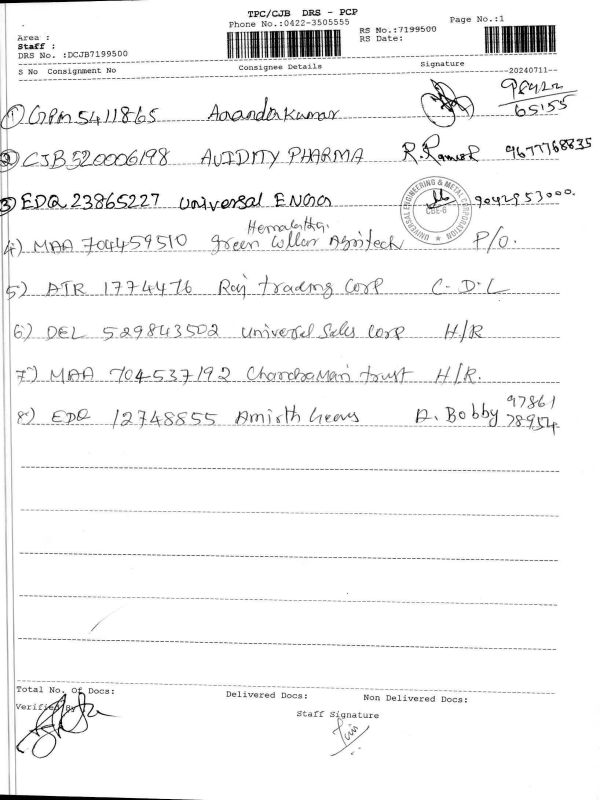 TPC/CJB DRS - PCP
Phone No.:0422-3505555
Page No.:1
Area :
Staff :
DRS No. :DCJB7199500
RS No.:7199500
RS Date:
S No Consignment No Consignee Details Signature 20240711
1) GPM 5411865 Anandakumar 98422 65155
2) CJB 520006198 AVIDITY PHARMA R. Ramesh 9677768835
3) EDQ 23865227 Universal ENGG 9042953000.
UNIVERSAL ENGINEERING & METAL CORPORATION
CBE-6
Hemalatha.
4) MAA 704459510 Green Collar Agritech P/O.
5) ATR 1774476 Raj trading Corp C-D-L
6) DEL 529843502 Universal Sales Corp H/R
7) MAA 704537192 Chandramari trust H/R.
8) EDQ 12748855 Amirth A. Bobby 97861 78954
Total No. Of Docs:
Delivered Docs:
Non Delivered Docs:
Verified By
Staff Signature